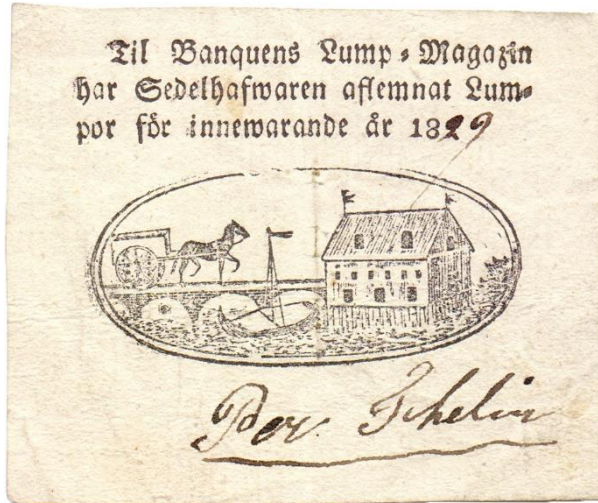 Til Banquens Lump-Magazin
har Sedelhafwaren aflemnat Lum-
por för innewarande år 1829
Per